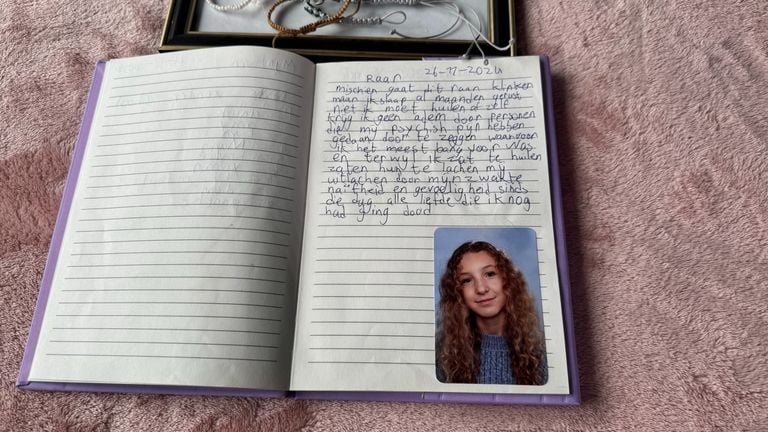 Raar 26-11-2024
mischien gaat dit raar klinken
maar ik slaap al maanden gerust
niet ik moet huilen of zelf
krijg ik geen adem door personen
die my psychish pyn hebben
gedaan door te zeggen waarvoor
ik het meest bang voor was
en terwyl ik zat te huilen
zaten hun te lachen my
uitlachen door mynzwakte
naïfheid en gevoeligheid sinds
die dag alle liefde die ik nog
had ging dood